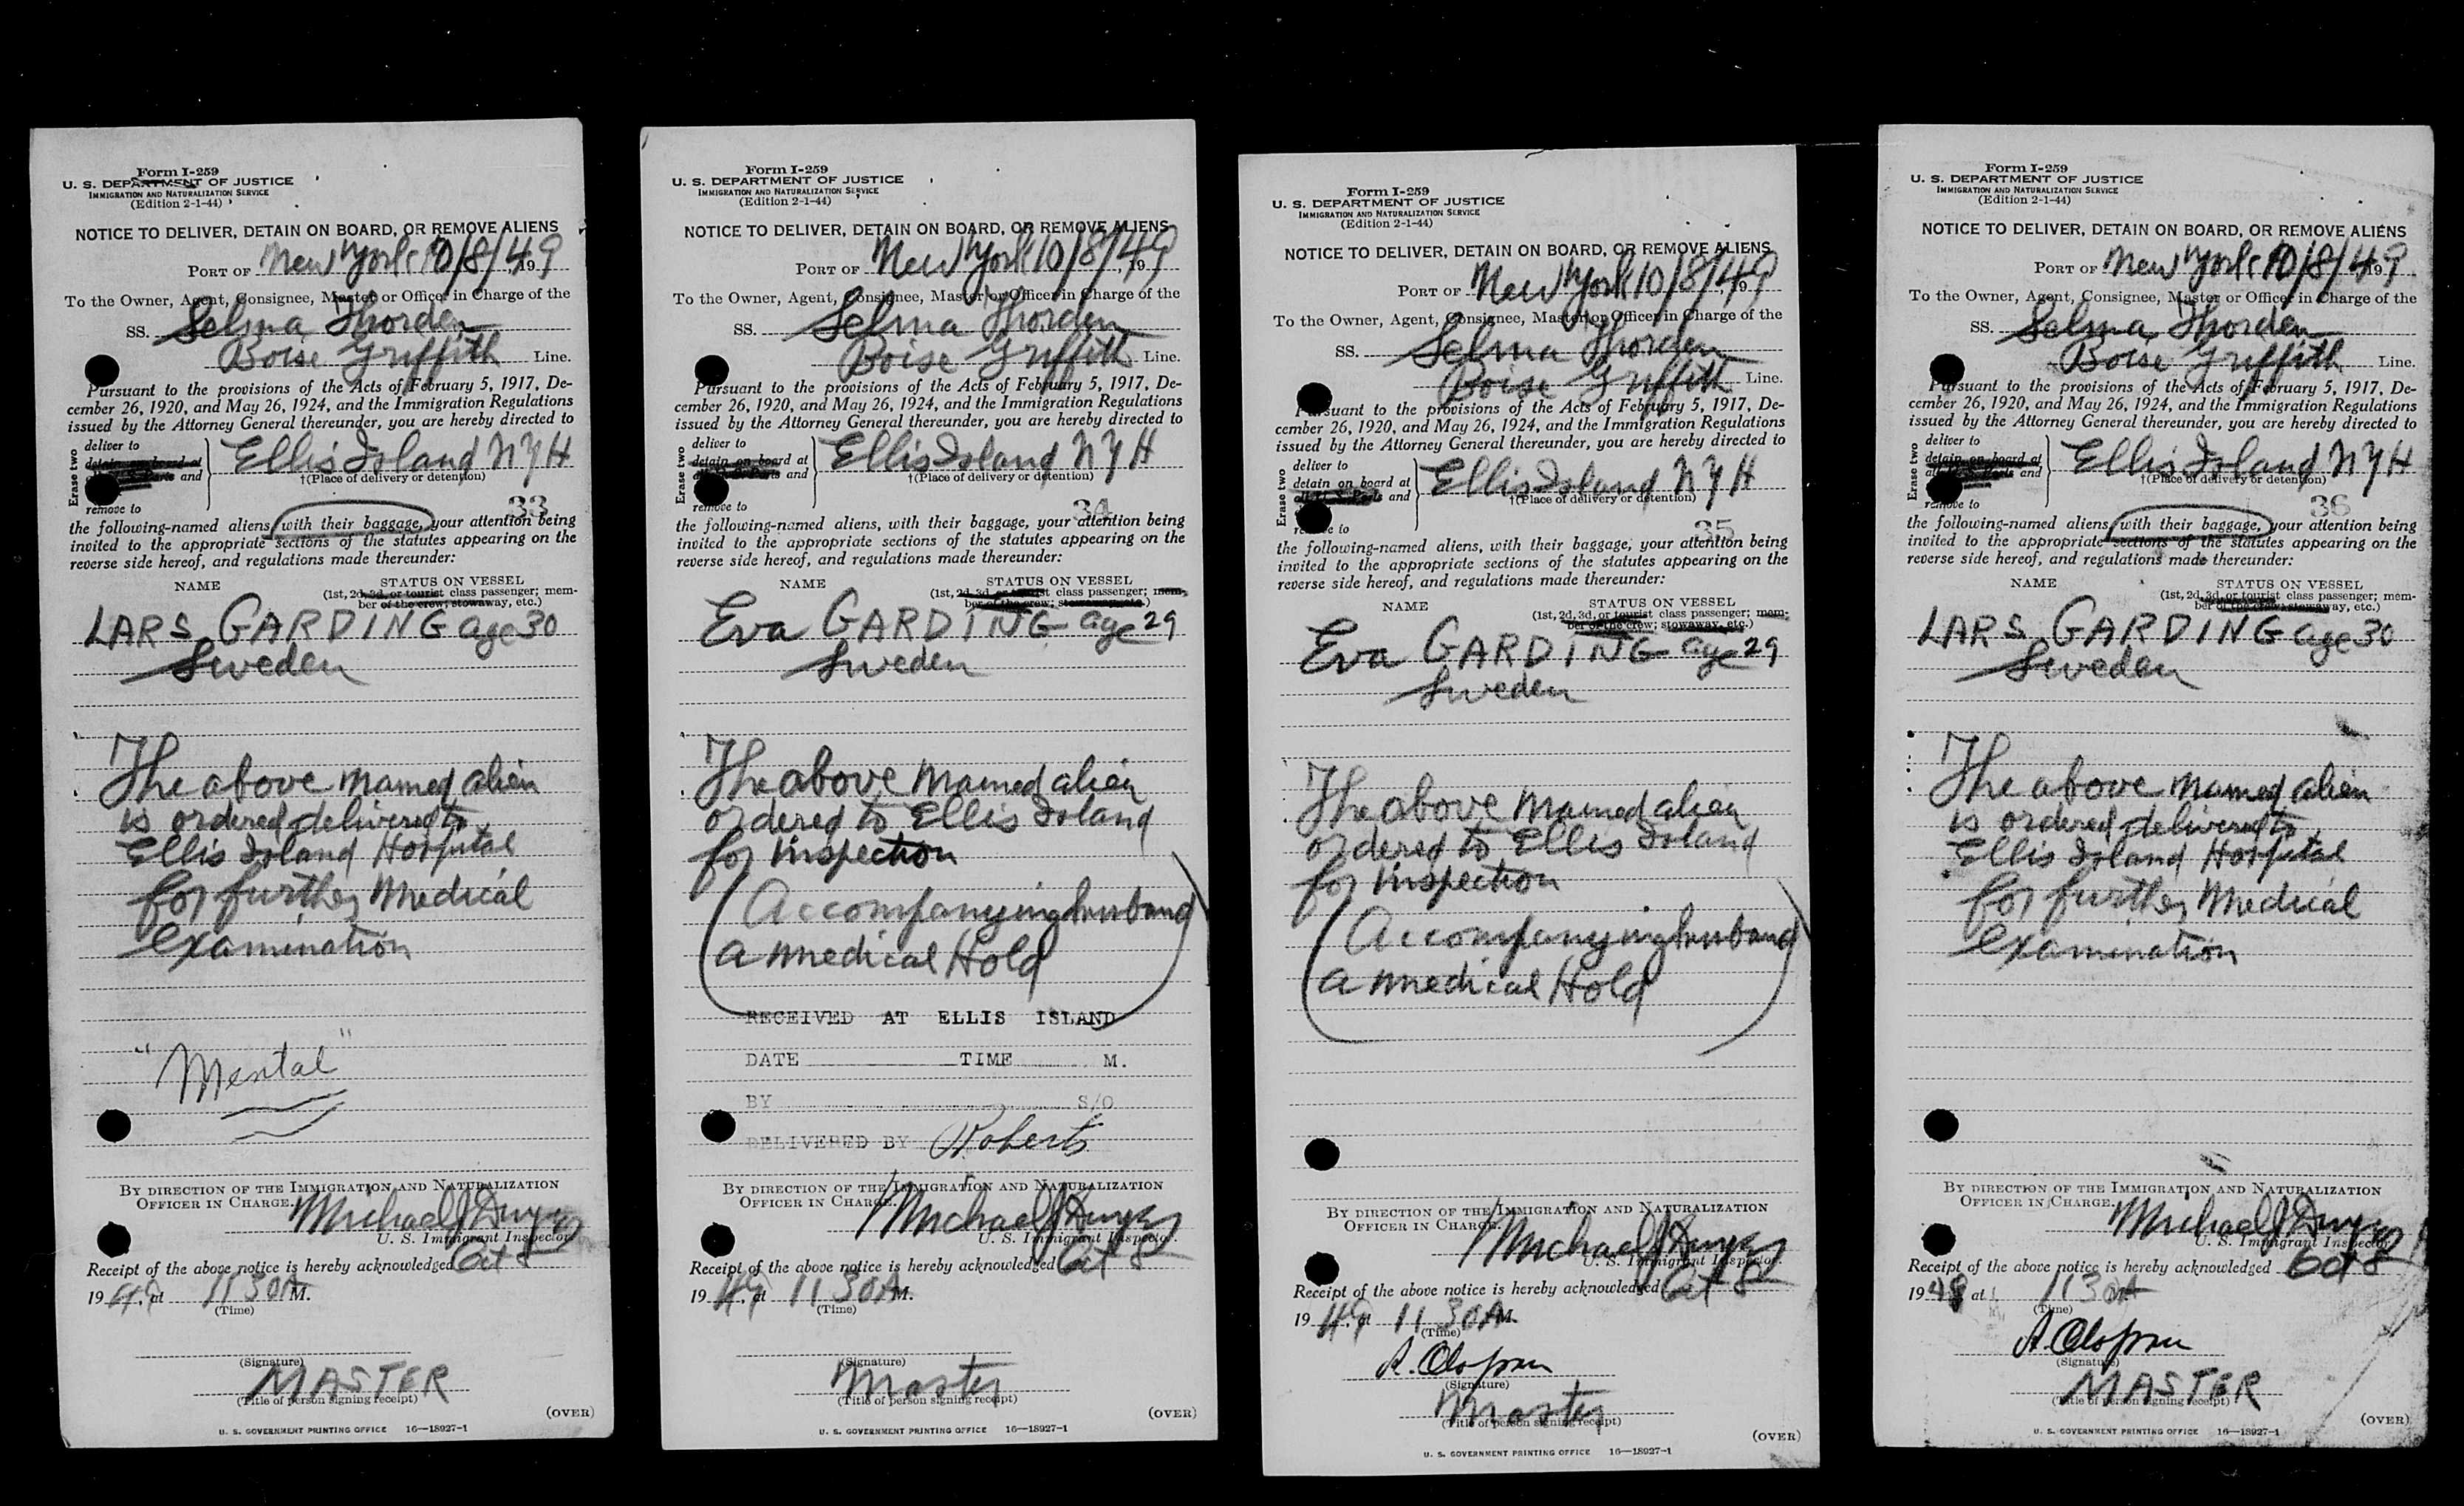 Form I-259
U. S. DEPARTMENT OF JUSTICE
IMMIGRATION AND NATURALIZATION SERVICE
(Edition 2-1-44)
NOTICE TO DELIVER, DETAIN ON BOARD, OR REMOVE ALIENS
PORT OF New York 10/8/, 1949
To the Owner, Agent, Consignee, Master or Officer in Charge of the
SS. Selma Thorden
Boise Griffith Line.
Pursuant to the provisions of the Acts of February 5, 1917, De-
cember 26, 1920, and May 26, 1924, and the Immigration Regulations
issued by the Attorney General thereunder, you are hereby directed to
Erase two
deliver to
detain on board at
and
remove to
Ellis Island NYH
†(Place of delivery or detention)
33
the following-named aliens, with their baggage, your attention being
invited to the appropriate sections of the statutes appearing on the
reverse side hereof, and regulations made thereunder:
NAME STATUS ON VESSEL
(1st, 2d, 3d, or tourist class passenger; mem-
ber of the crew; stowaway, etc.)
LARS GARDING age 30
Sweden
The above named alien
is ordered delivered to
Ellis Island Hospital
for further Medical
Examination
"Mental"
BY DIRECTION OF THE IMMIGRATION AND NATURALIZATION
OFFICER IN CHARGE.
Michael J Dwyer
U. S. Immigrant Inspector.
Receipt of the above notice is hereby acknowledged Oct 8
1949, at 11 30 A M.
(Time)
(Signature)
MASTER
(Title of person signing receipt)
(OVER)
U. S. GOVERNMENT PRINTING OFFICE 16—18927-1
Form I-259
U. S. DEPARTMENT OF JUSTICE
IMMIGRATION AND NATURALIZATION SERVICE
(Edition 2-1-44)
NOTICE TO DELIVER, DETAIN ON BOARD, OR REMOVE ALIENS
PORT OF New York 10/8/49, 19
To the Owner, Agent, Consignee, Master or Officer in Charge of the
SS. Selma Thorden
Boise Griffith Line.
Pursuant to the provisions of the Acts of February 5, 1917, De-
cember 26, 1920, and May 26, 1924, and the Immigration Regulations
issued by the Attorney General thereunder, you are hereby directed to
Erase two
deliver to
detain on board at
and
remove to
Ellis Island NYH
†(Place of delivery or detention)
34
the following-named aliens, with their baggage, your attention being
invited to the appropriate sections of the statutes appearing on the
reverse side hereof, and regulations made thereunder:
NAME STATUS ON VESSEL
(1st, 2d, 3d, or tourist class passenger; mem-
ber of the crew; stowaway, etc.)
Eva GARDING age 29
Sweden
The above named alien
ordered to Ellis Island
for inspection
(Accompanying husband
a medical Hold)
RECEIVED AT ELLIS ISLAND
DATE TIME M.
BY S/O
DELIVERED BY Roberts
BY DIRECTION OF THE IMMIGRATION AND NATURALIZATION
OFFICER IN CHARGE.
Michael J Dwyer
U. S. Immigrant Inspector.
Receipt of the above notice is hereby acknowledged Oct 8
1949, at 11 30 A M.
(Time)
(Signature)
Master
(Title of person signing receipt)
(OVER)
U. S. GOVERNMENT PRINTING OFFICE 16—18927-1
Form I-259
U. S. DEPARTMENT OF JUSTICE
IMMIGRATION AND NATURALIZATION SERVICE
(Edition 2-1-44)
NOTICE TO DELIVER, DETAIN ON BOARD, OR REMOVE ALIENS
PORT OF New York 10/8/49, 19
To the Owner, Agent, Consignee, Master or Officer in Charge of the
SS. Selma Thorden
Boise Griffith Line.
Pursuant to the provisions of the Acts of February 5, 1917, De-
cember 26, 1920, and May 26, 1924, and the Immigration Regulations
issued by the Attorney General thereunder, you are hereby directed to
Erase two
deliver to
detain on board at
and
remove to
Ellis Island NYH
†(Place of delivery or detention)
35
the following-named aliens, with their baggage, your attention being
invited to the appropriate sections of the statutes appearing on the
reverse side hereof, and regulations made thereunder:
NAME STATUS ON VESSEL
(1st, 2d, 3d, or tourist class passenger; mem-
ber of the crew; stowaway, etc.)
Eva GARDING age 29
Sweden
The above named alien
ordered to Ellis Island
for inspection
(Accompanying husband
a medical Hold)
BY DIRECTION OF THE IMMIGRATION AND NATURALIZATION
OFFICER IN CHARGE.
Michael J Dwyer
U. S. Immigrant Inspector.
Receipt of the above notice is hereby acknowledged Oct 8
1949, at 11 30 A M.
(Time)
(Signature)
Master
(Title of person signing receipt)
(OVER)
U. S. GOVERNMENT PRINTING OFFICE 16—18927-1
Form I-259
U. S. DEPARTMENT OF JUSTICE
IMMIGRATION AND NATURALIZATION SERVICE
(Edition 2-1-44)
NOTICE TO DELIVER, DETAIN ON BOARD, OR REMOVE ALIENS
PORT OF New York 10/8/, 1949
To the Owner, Agent, Consignee, Master or Officer in Charge of the
SS. Selma Thorden
Boise Griffith Line.
Pursuant to the provisions of the Acts of February 5, 1917, De-
cember 26, 1920, and May 26, 1924, and the Immigration Regulations
issued by the Attorney General thereunder, you are hereby directed to
Erase two
deliver to
detain on board at
and
remove to
Ellis Island NYH
†(Place of delivery or detention)
36
the following-named aliens, with their baggage, your attention being
invited to the appropriate sections of the statutes appearing on the
reverse side hereof, and regulations made thereunder:
NAME STATUS ON VESSEL
(1st, 2d, 3d, or tourist class passenger; mem-
ber of the crew; stowaway, etc.)
LARS GARDING age 30
Sweden
The above named alien
is ordered delivered to
Ellis Island Hospital
for further Medical
Examination
BY DIRECTION OF THE IMMIGRATION AND NATURALIZATION
OFFICER IN CHARGE.
Michael J Dwyer
U. S. Immigrant Inspector.
Receipt of the above notice is hereby acknowledged Oct 8
1949 at 11 30 A
(Time)
(Signature)
MASTER
(Title of person signing receipt)
(OVER)
U. S. GOVERNMENT PRINTING OFFICE 16—18927-1